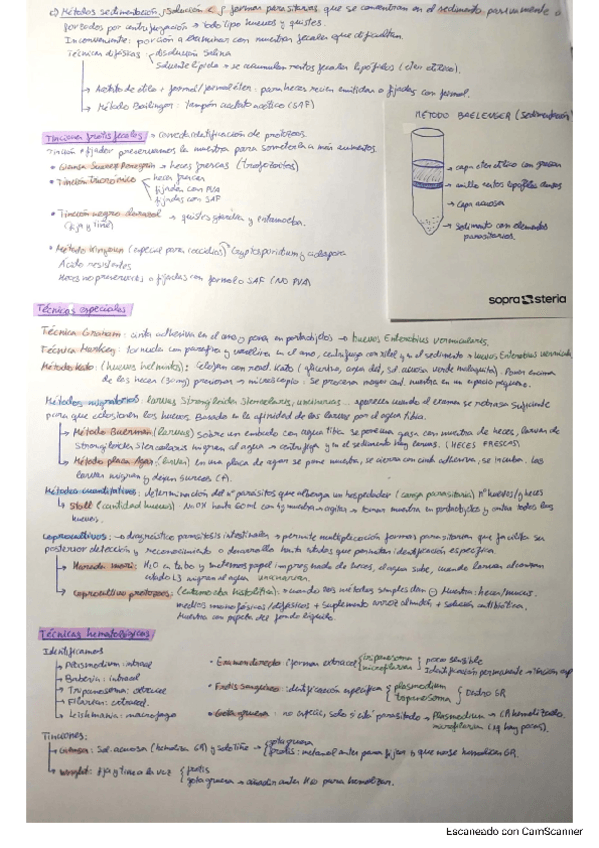 c) Métodos sedimentación: solución formas parasitarias que se concentran en el sedimento. para un mente o
por todos por centrifugación → todo tipo huevos y quistes.
Inconveniente: porción a examinar con muestra fecales que dificultan.
Técnicas difásicas disolución salina
solvente lípido → se acumulan restos fecales lipófilos (éter etílico).
→ Acetato de etilo + formol/formol éter: para heces recién emitidas o fijadas con formol.
→ Método Bailenger: tampón acetato acético (SAF)
MÉTODO BAELENGER (sedimentación
→ capa éter etílico con grasas
→ anillo restos lipófilos densos
→ Capa acuosa
→ Sedimento con elementos
parasitarios.
sopra steria
Tinciones frotis fecales → correcta identificación de protozoos
Tinción + fijador preservamos la muestra para someterla a más aumentos
→ heces frescas (trofozoitos)
Tinción tricrómico heces frescas
fijadas con PVA
fijadas con SAF
Tinción negro clorazol → quistes giardia y entamoeba.
(fija y tiñe)
Método Kinyoun (especial para coccidios) Cryptosporidium y ciclospora
Ácido resistentes
Heces no preservadas o fijadas con formol o SAF (NO PVA)
Técnicas especiales
Técnica Graham: cinta adhesiva en el ano y poner en portaobjetos → huevos Enterobius vermicularis.
Técnica Markey: torunda con parafina y vaselina en el ano, centrifugo con xilol y en el sedimento → huevos Enterobius vermicula
Método Kato: (huevos helmintos): celofan con react. Kato (glicerina, agua del, sol. acuosa verde malaquita). Poner encima
de las heces (30mg) presionar → microscopio. Se procesa mayor cant. muestra en un espacio pequeño.
Métodos migratorios: larvas Strongiloides stercolaris, uncinarias... aparecen cuando el examen se retrasa suficiente
para que eclosionen los huevos. Basado en la afinidad de las larvas por el agua tibia.
→ Método Baerman (larvas) sobre un embudo con agua tibia se pone una gasa con muestra de heces, larvas de
strongiloides stercolaris migran al agua → centrifuga y en el sedimento hay larvas. (HECES FRESCAS)
→ Método placa Agar: (larvas) en una placa de agar se pone muestra, se cierra con cinta adhesiva, se incuba. las
larvas migran y dejan surcos (A).
Métodos cuantitativos: determinación del nº parásitos que alberga un hospedador (carga parasitaria) nº huevos/g heces
→ Stoll (cantidad huevos): NaOH hasta 60ml con 4g muestra → agitar → tomar muestra en portaobjetos y contar todos los
huevos.
coprocultivos: → diagnóstico parasitosis intestinales → permite multiplicación formas parasitarias que facilita su
posterior detección y reconocimiento o desarrollo hasta estados que permitan identificación específica.
→ Harada mori: H₂O en tubo y metemos papel impregnado de heces, el agua sube, cuando larvas alcanzan
estado L3 migran al agua uncinarias.
→ Coprocultivo protozoos: (entamoeba histolitica): → cuando los métodos simples dan ⊖ Muestra: heces/mucus.
medios monofásicos/difásicos + suplemento arroz almidón + solución antibiótica.
Muestra con pipeta del fondo líquido.
Técnicas hematológicas
Identificamos
→ Plasmodium: intracel
→ Babesia: intracel
→ Tripanosoma: extracel
→ Filarias: extracel.
→ Leishmania: macrofago
• Examen directo: forman extracel tripanosoma
microfilarias poco sensible
Identificación permanente → tinción esp
• Frotis sanguíneo: identificación específica plasmodium
tripanosoma Dentro GR
• Gota gruesa: no especie, solo si está parasitado → Plasmodium → GR hemolizados.
microfilarias (si hay pocas).
Tinciones:
→ Giemsa: Sol. acuosa (hemoliza GR) y solo tiñe → gota gruesa
frotis: metanol antes para fijar y que no se hemolicen GR.
→ wright: fija y tiñe a la vez frotis
gota gruesa → añadir antes H₂O para hemolizar.
Escaneado con CamScanner